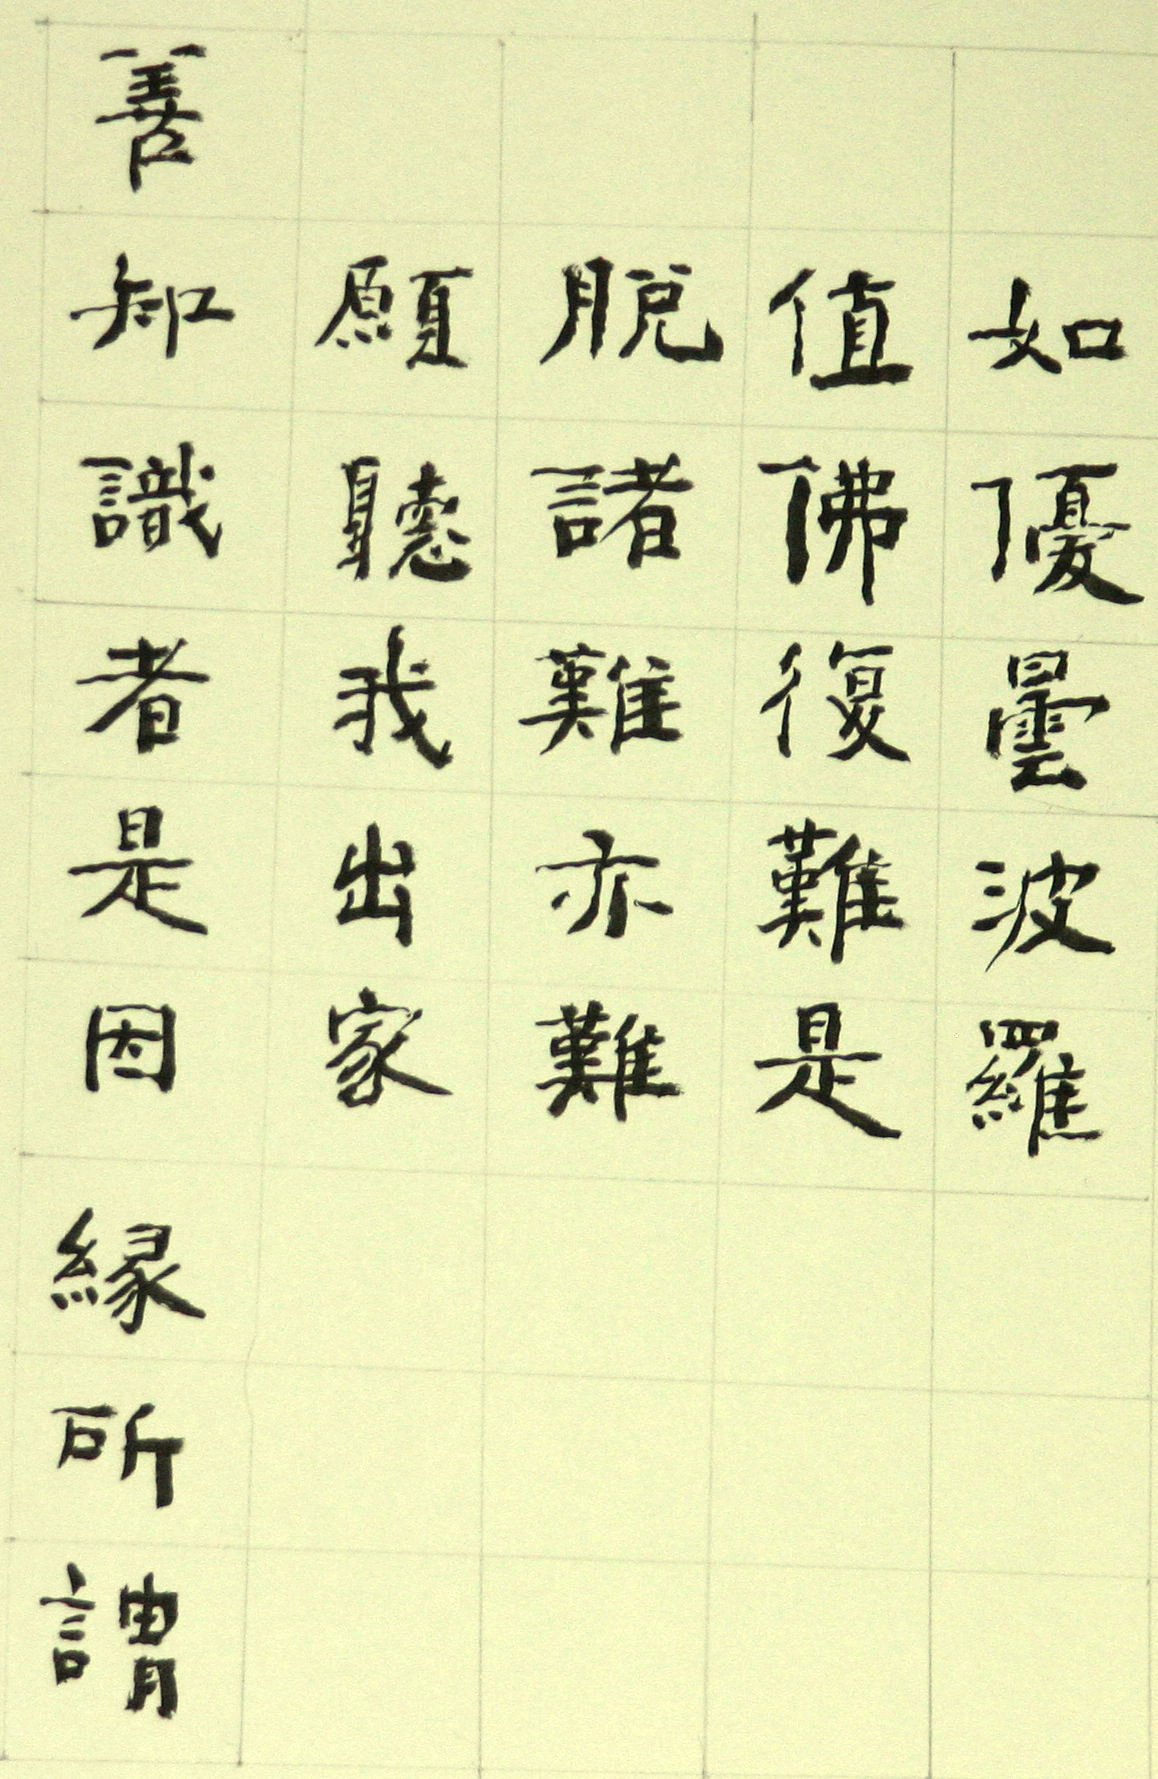 如優曇波羅
值佛復難是
脫諸難亦難
願聽我出家
善知識者是因緣所謂